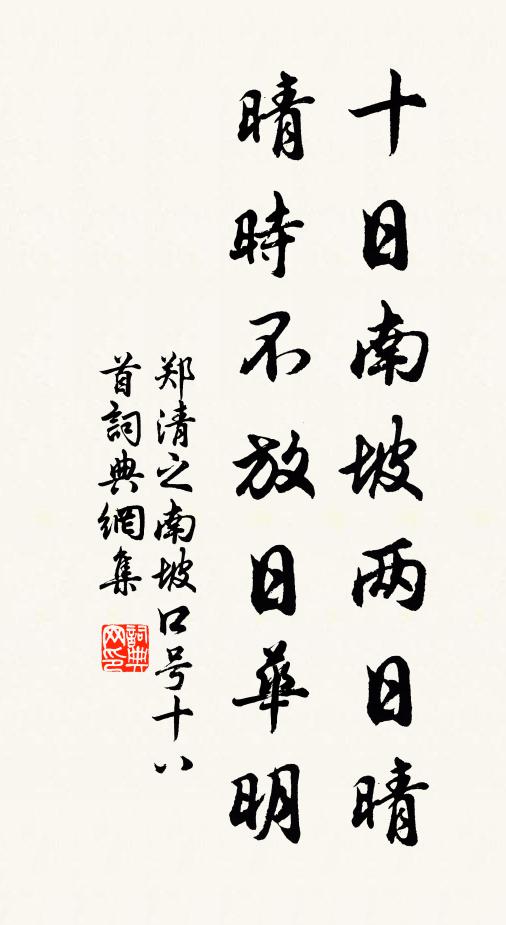 十日南坡两日晴
晴時不放日華明
郑清之南坡口号十八
首詞典網集
詞典
网印